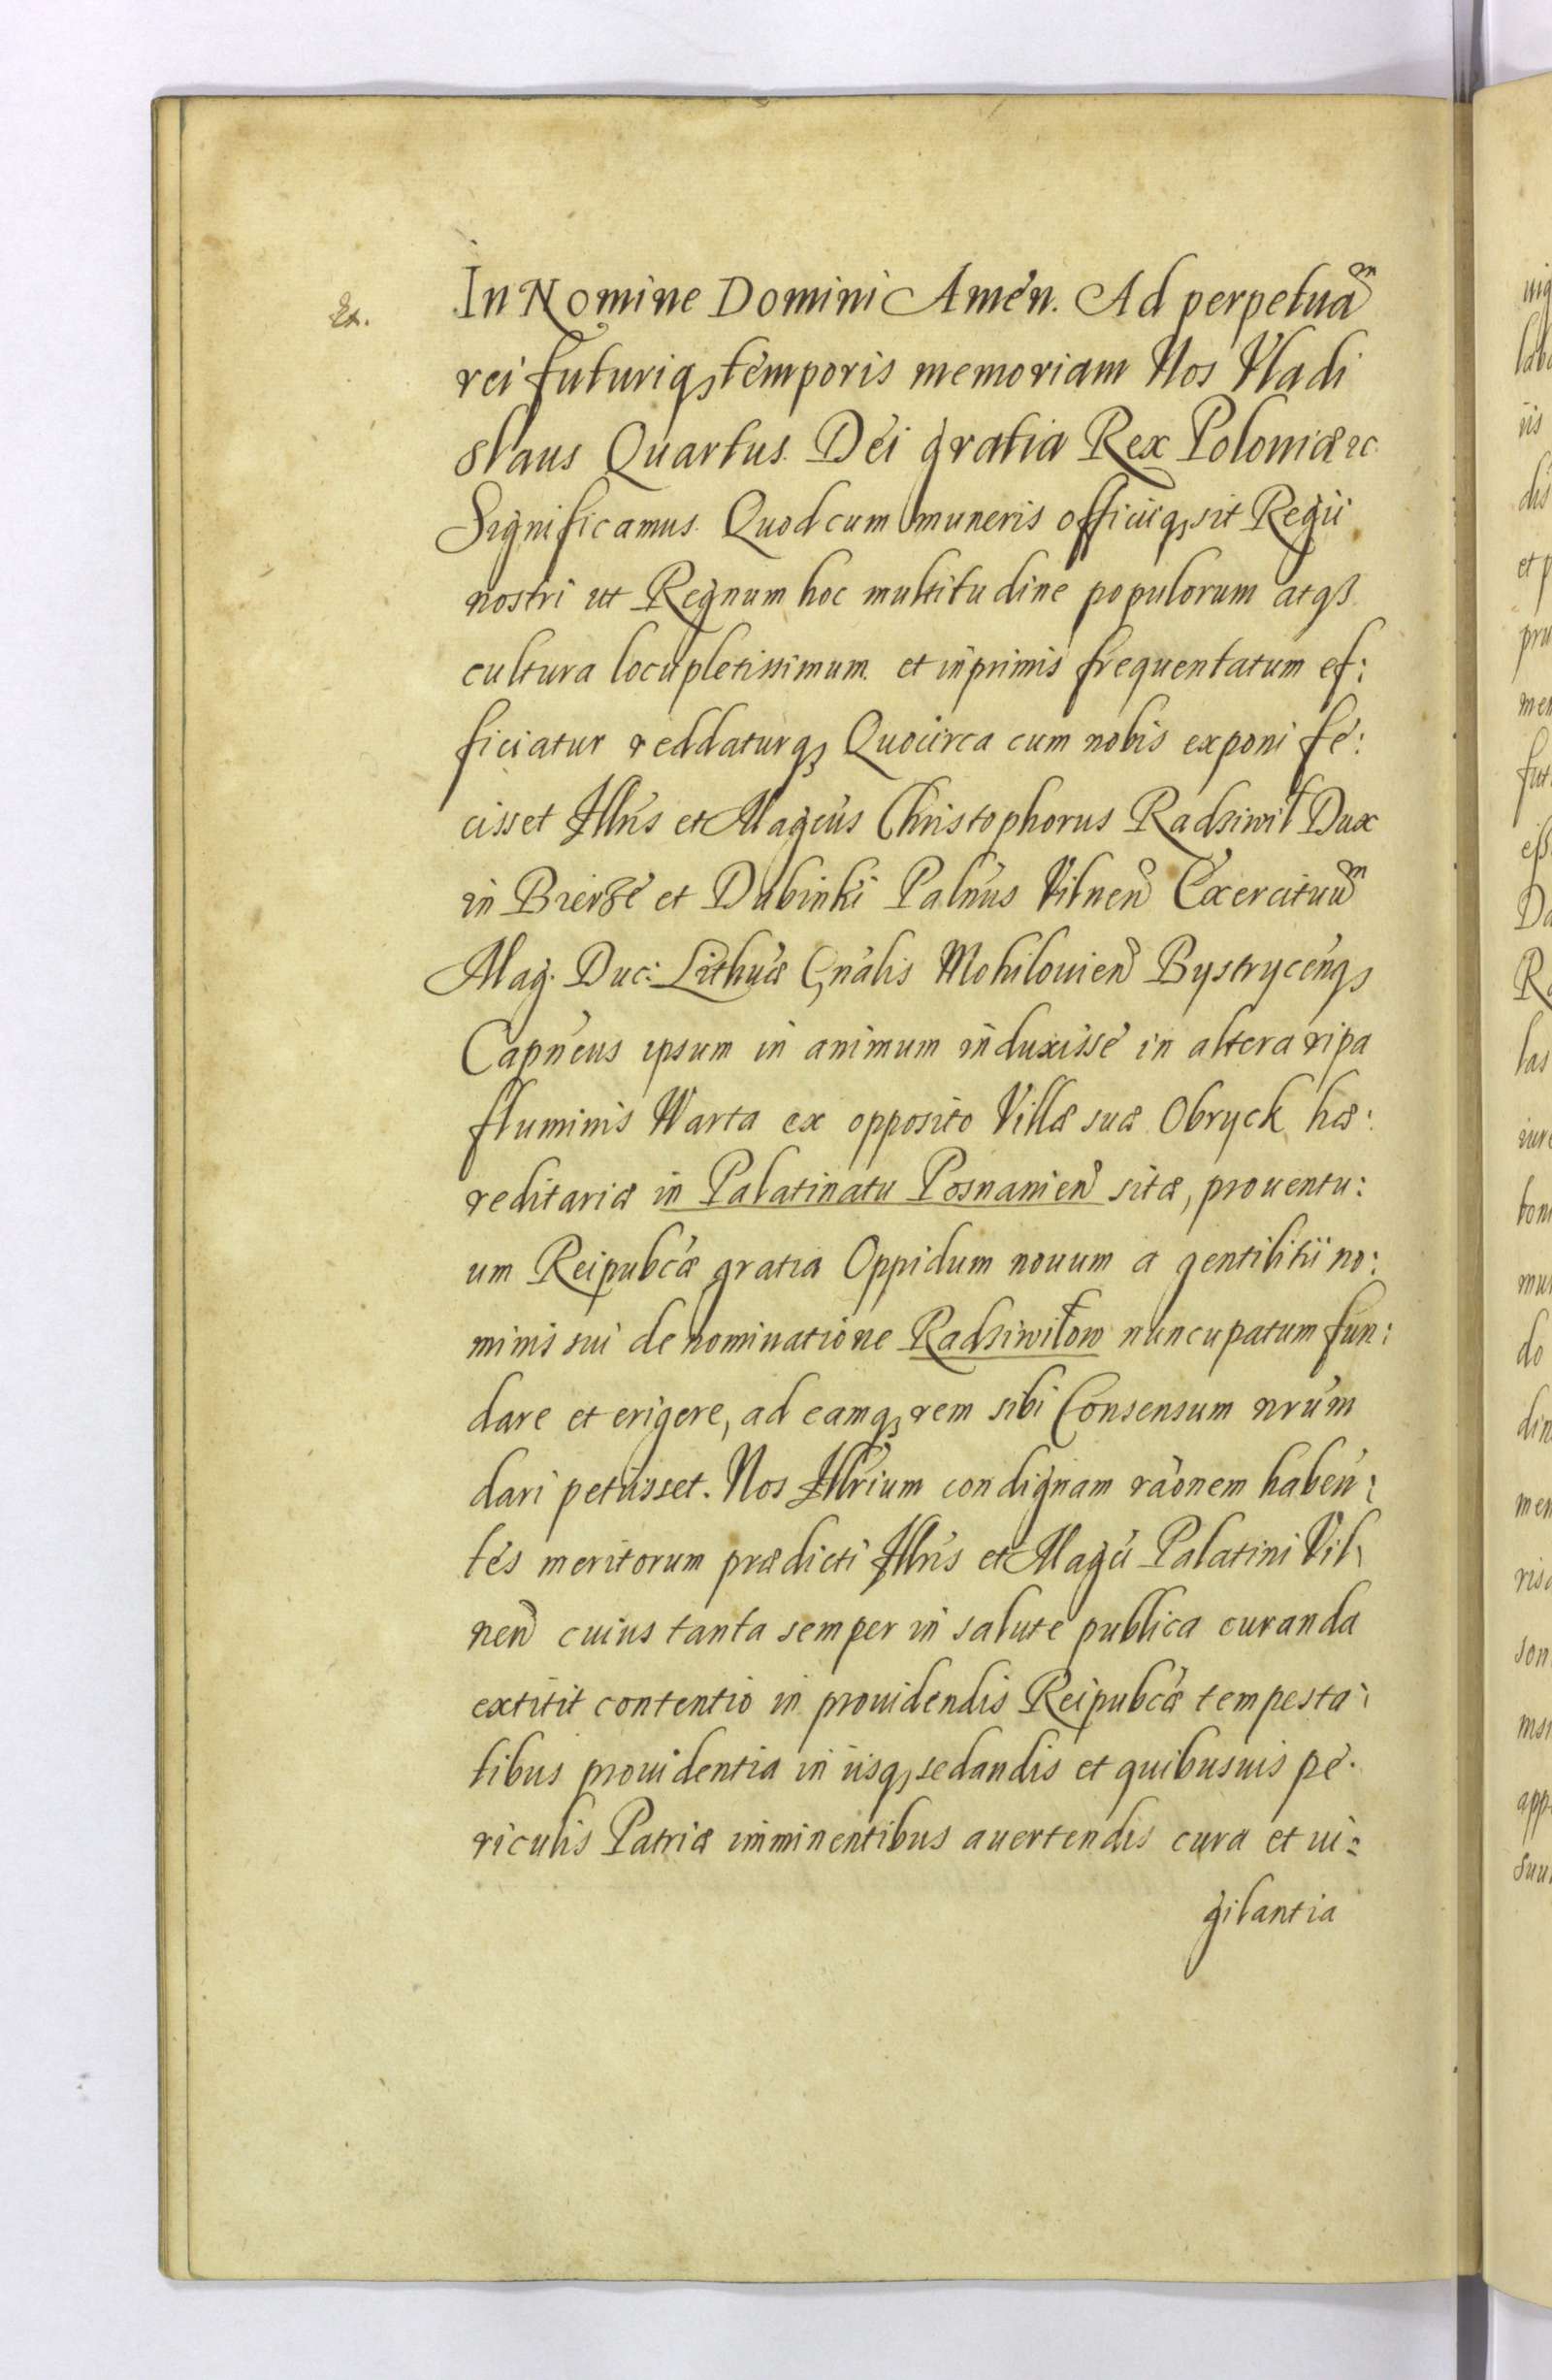 In Nomine Domini Amen. Ad perpetuam
rei futuriq3 temporis memoriam Nos Vladi
slaus Quartus. Dei gratia Rex Poloniæ &c
Significamus. Quod cum muneris officiiq3 sit Regii
nostri ut Regnum hoc multitudine populorum atq3
cultura locupletissimum. et inprimis frequentatum ef:
ficiatur reddaturq3 Quocirca cum nobis exponi fe:
cisset Illris et Magcus Christophorus Radziwił Dux
in Bierże et Dubinki Palnus Vilnen Exercituum
Mag. Duc: Lithuæ Gnalis Mohilouien Bystrycenq3
Capneus ipsum in animum induxisse in altera ripa
fluminis Warta ex opposito Villæ suæ Obryck hæ:
reditariæ in Palatinatu Posnanien sitæ, prouentu:
um Reipubcæ gratia Oppidum nouum a gentilitii no:
minis sui denominatione Radziwiłow nuncupatum fun:
dare et erigere, ad eamq3 rem sibi Consensum nrum
dari petiisset. Nos Illrium condignam raonem haben:
tes meritorum prædicti Illris et Magci Palatini Vil:
nen cuius tanta semper in salute publica curanda
extitit contentio in prouidendis Reipubcæ tempesta:
tibus prouidentia in iisq3 sedandis et quibusuis pe.
riculis Patriæ imminentibus auertendis cura et ui:
gilantia